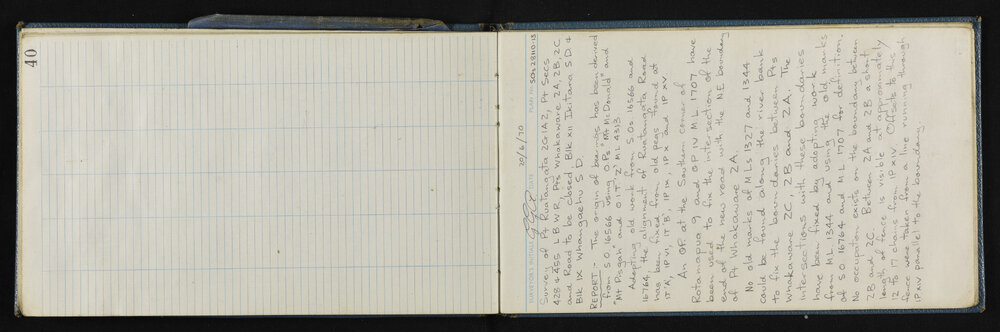 40
SURVEYOR'S INITIALS DATE 20/6/70 PLAN NO SO 28110:13
Survey of Pt Ruatangata 2G1A2, Pt Secs
428 & 455 L B W R, Pts Whakaware 2A, 2B, 2C
and Road to be closed, Blk XII Ikitara S D &
Blk IX Whangaehu S D
REPORT - The origin of bearings has been derived
from S.O. 16566 using OPs "Mt McDonald" and
"Mt Pisgah" and O I T 'Z' ML 4313
Adopting old work from S.Os 16566 and
16764, the alignment of Ruatangata Road
has been fixed from old pegs found at
IT 'A', IP VI, IT 'B', IP IX, IP X and IP XV
An OP at the Southern corner of
Rotomapua 9 and OP IV ML 1707 have
been used to fix the intersection of the
end of the new road with the N.E boundary
of Pt Whakaware 2A
No old marks of MLs 1327 and 1344
could be found along the river bank
to fix the boundaries between Pts
Whakaware 2C, 2B and 2A. The
intersections with these boundaries
have been fixed by adopting work
from ML 1344 and using the old marks
of SO 16764 and ML 1707 for definition.
No occupation exists on the boundary between
2B and 2C. Between 2A and 2B a short
length of fence is visible at approximately
12 to 17 chains from IP XIV. Offsets to this
fence were taken from a line running through
IP XIV parallel to the boundary